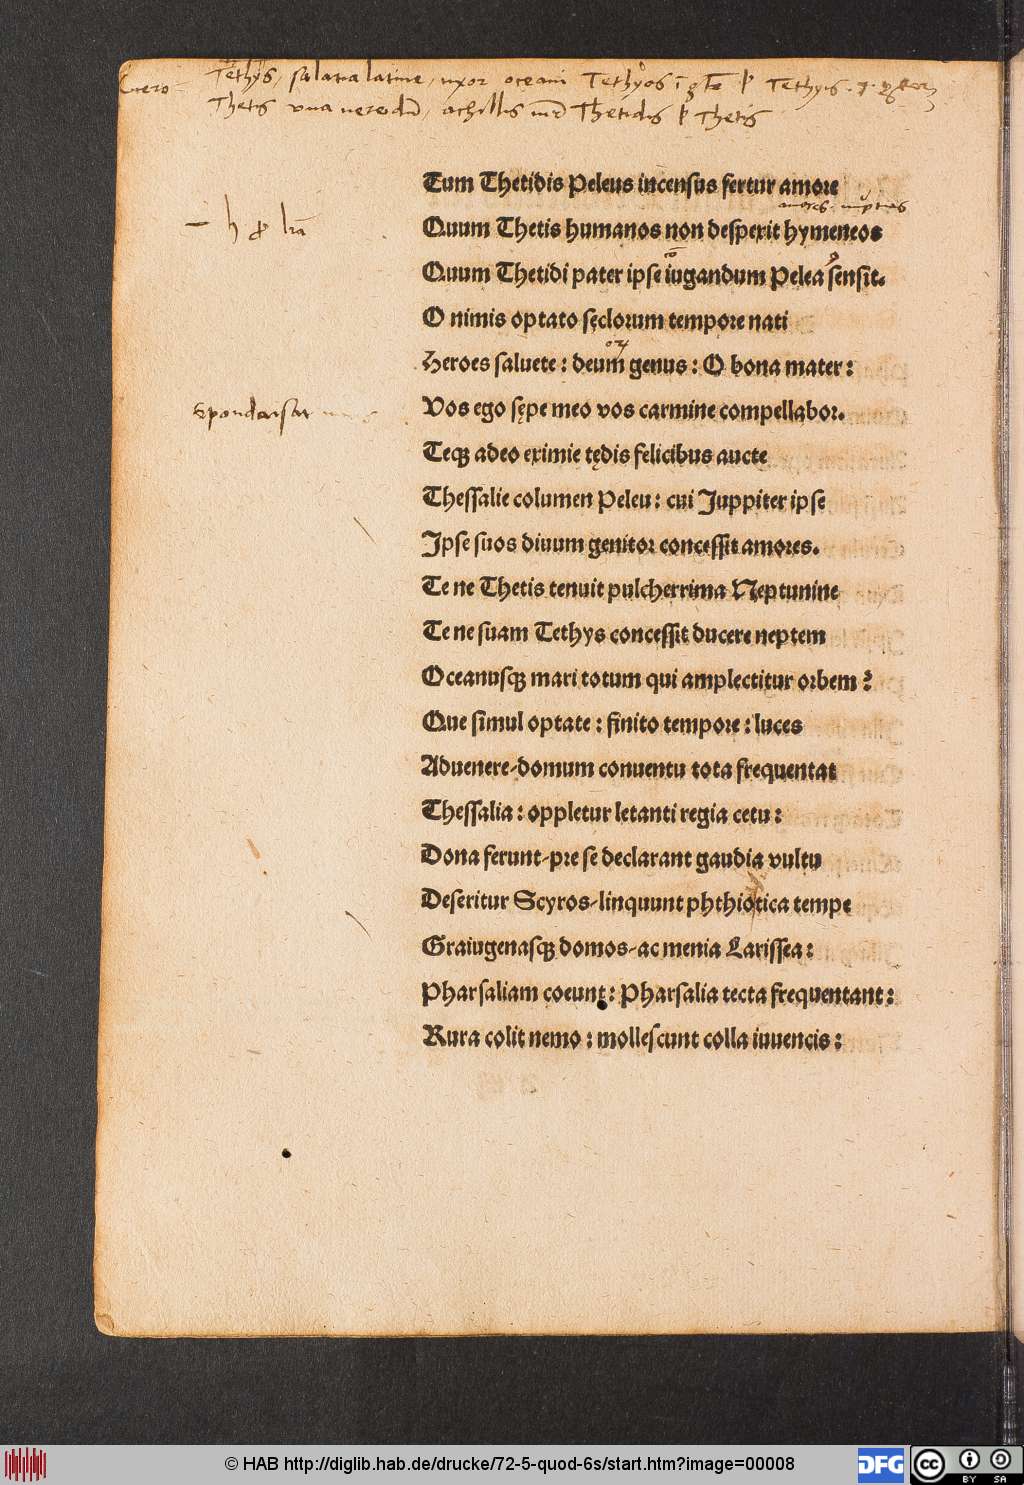 Cicero
Tethys, salacia latine, uxor oceani Tethyos
Thetis una nereidū, achillis Thetidis Thetis
Tum Thetidis Peleus incensus fertur amore
amores. nuptias
h
Quum Thetis humanos non despexit hymeneos
Quum Thetidi pater ipse iugandum Pelea sensit.
O nimis optato sęclorum tempore nati
Heroes saluete : deum genus : O bona mater :
Vos ego sępe meo vos carmine compellabor.
Teqꝫ adeo eximie tędis felicibus aucte
Thessalie columen Peleu : cui Juppiter ipse
Jpse suos diuum genitor concessit amores.
Te ne Thetis tenuit pulcherrima Neptunine
Te ne suam Tethys concessit ducere neptem
Oceanusqꝫ mari totum qui amplectitur orbem ?
Que simul optate : finito tempore : luces
Aduenere-domum conuentu tota frequentat
Thessalia : oppletur letanti regia cetu :
Dona ferunt-pre se declarant gaudia vultu
Deseritur Scyros-linquunt phthiotica tempe
Graiugenasqꝫ domos-ac menia Larissea :
Pharsaliam coeunt : Pharsalia tecta frequentant :
Rura colit nemo : mollescunt colla iuuencis :
© HAB http://diglib.hab.de/drucke/72-5-quod-6s/start.htm?image=00008
DFG
cc BY SA